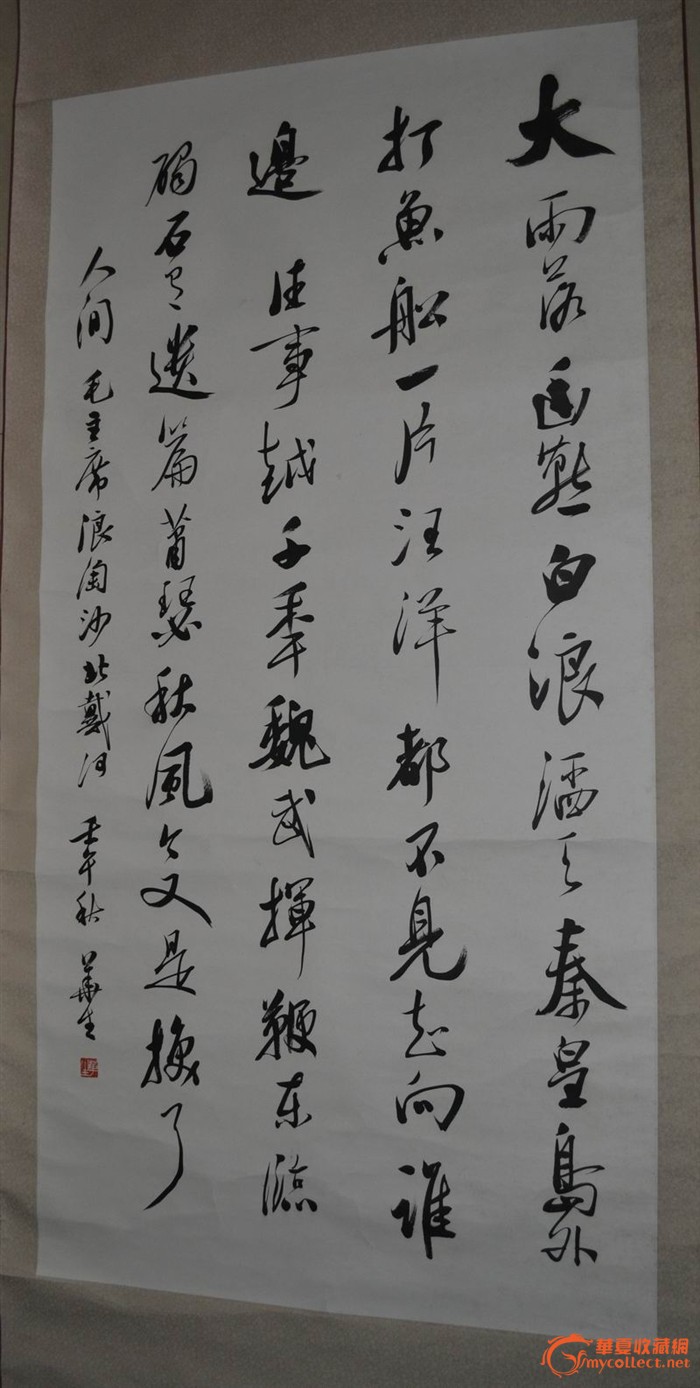 大雨落幽燕白浪滔天秦皇島外
打魚船一片汪洋都不見知向誰
邊 往事越千年魏武揮鞭東臨
碣石有遺篇蕭瑟秋風今又是換了
人间 毛主席浪淘沙北戴河 壬午秋 華生
華夏收藏網
mycollect.net